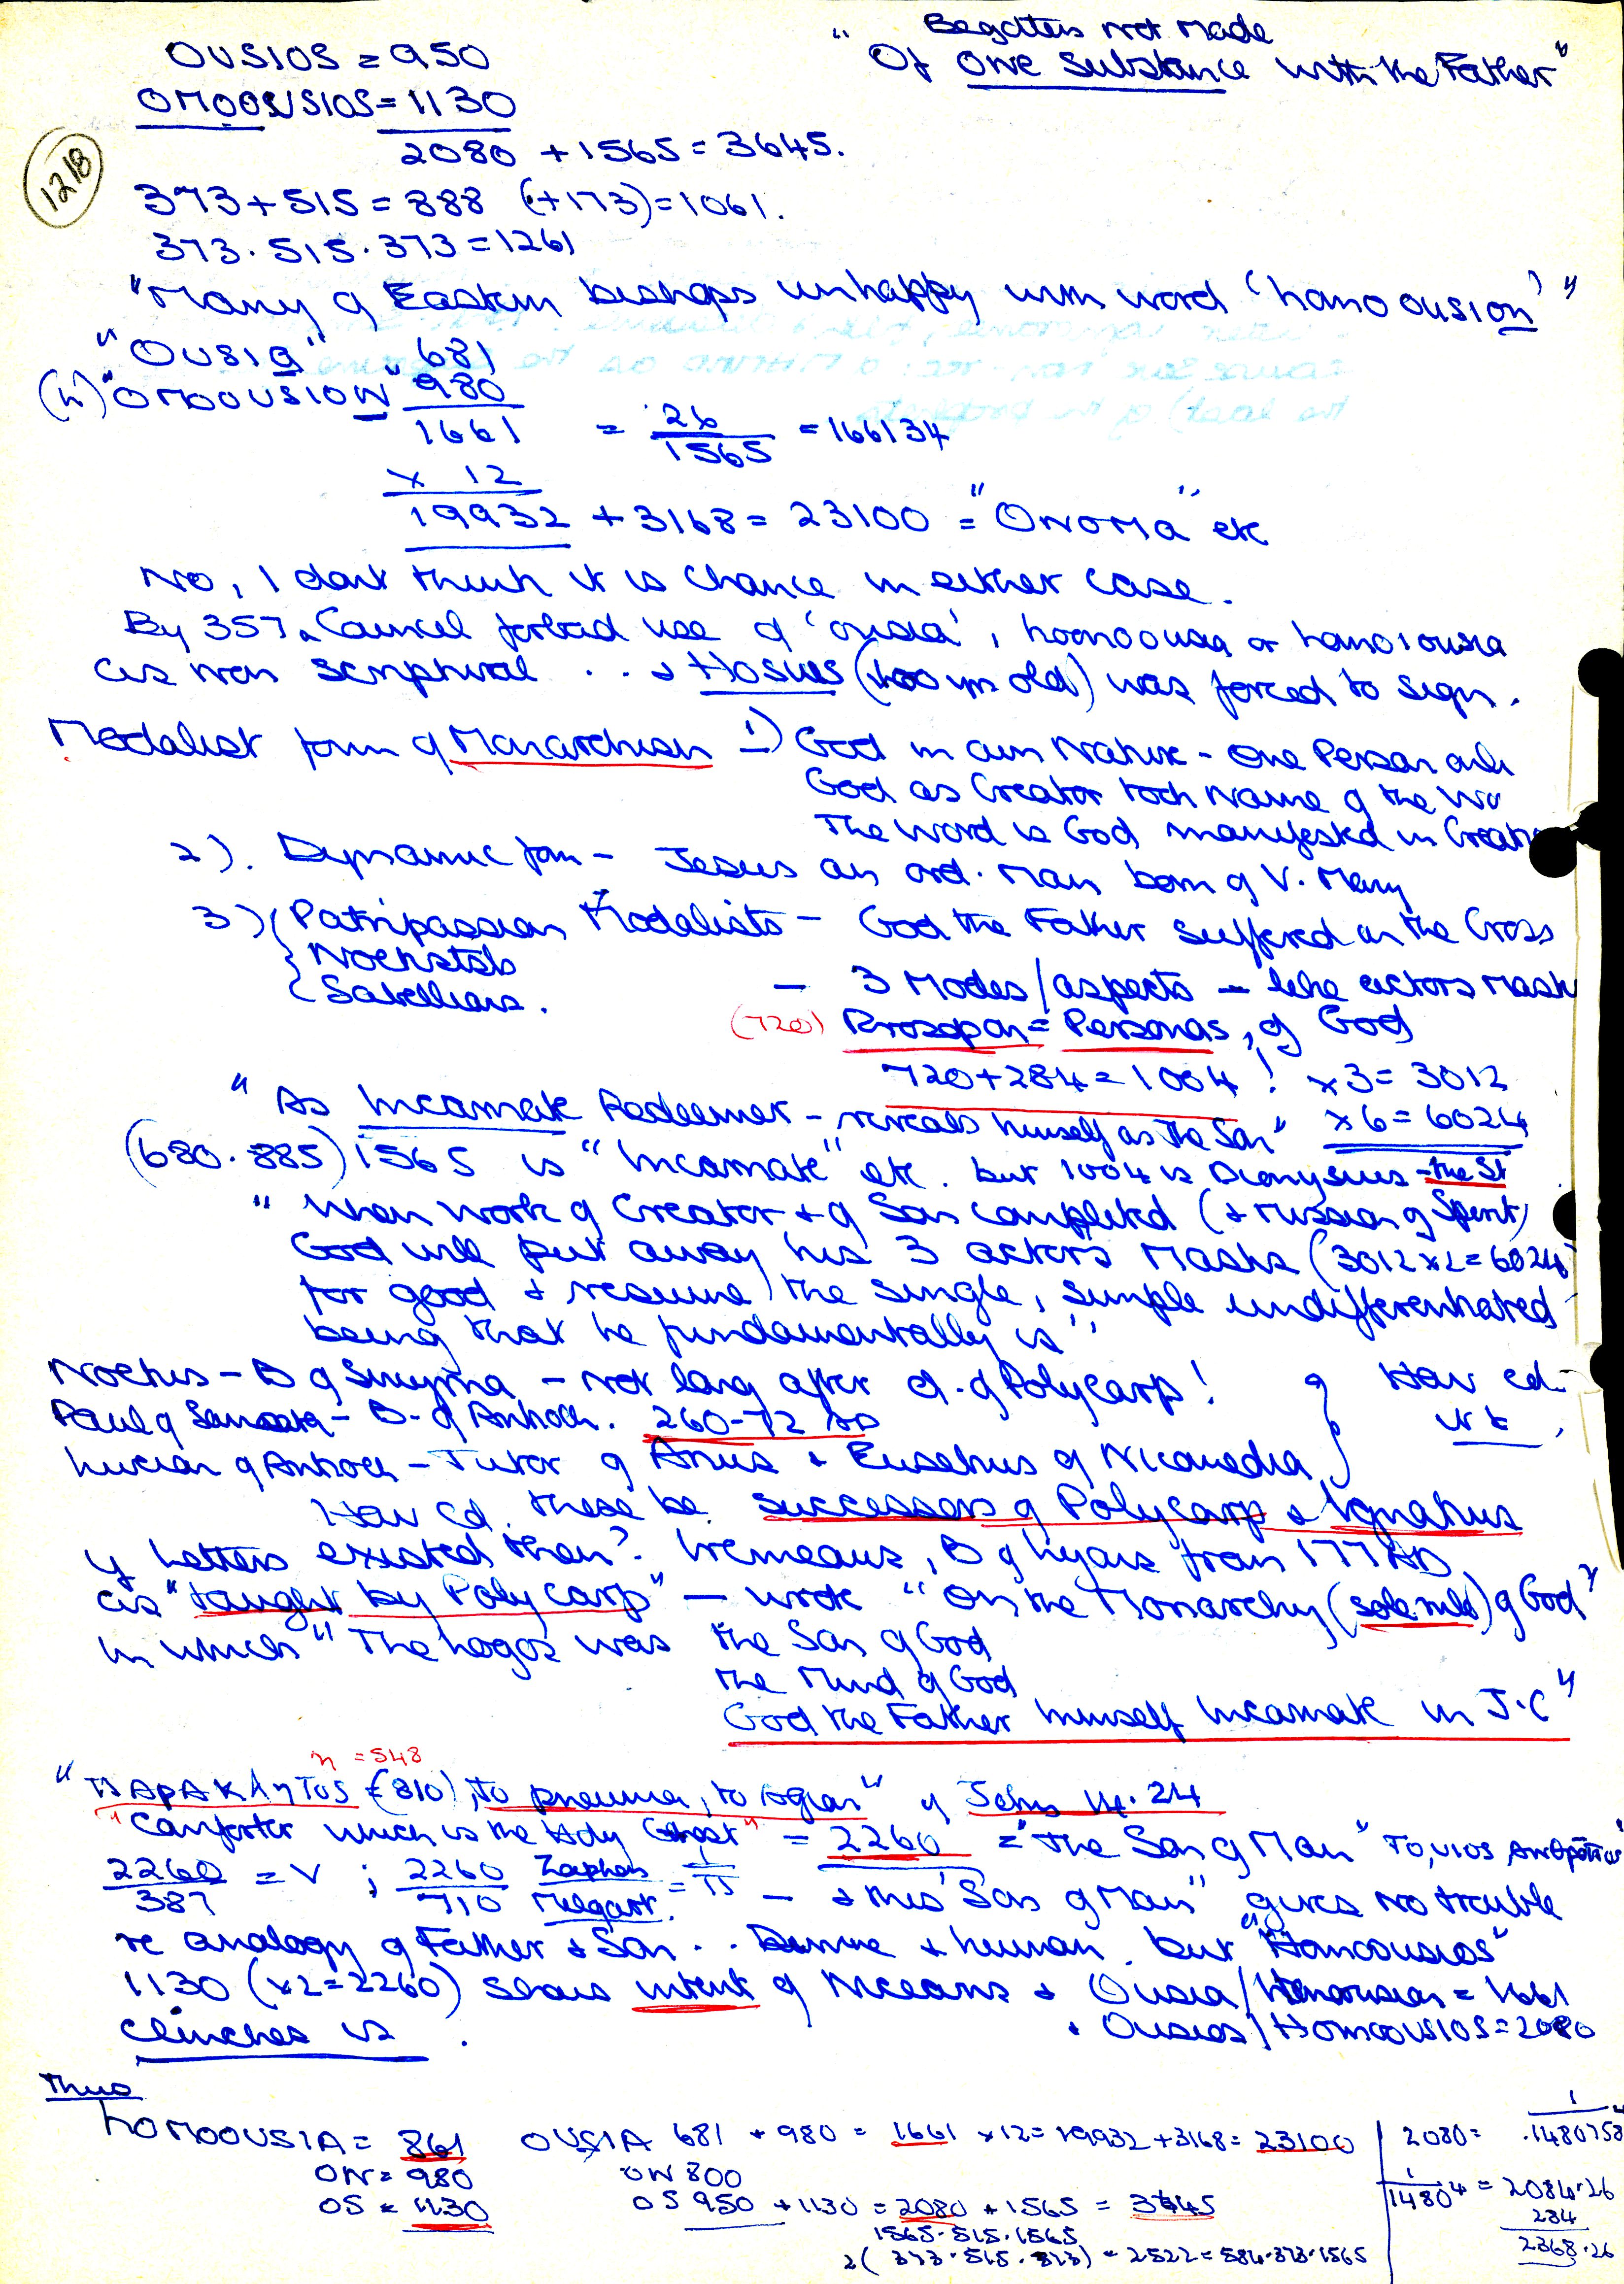 OUSIOS = 950
OMOOUSIOS = 1130
2080 + 1565 = 3645.
"Begotten not made
Of one Substance with the Father"
1218
373 + 515 = 888 (+173) = 1061.
373 . 515 . 373 = 1261
"Many of Eastern bishops unhappy with word 'homoousion'"
"OUSIA" 681
(h) "OMOOUSION" 980
1661 = 26/1565 = 166134
x 12
19932 + 3168 = 23100 = "ONOMA" etc
No, I dont think it is chance in either case.
By 357 a Council forbad use of 'ousia', homoousia or homoiousia
as non scriptural . . & Hosius (100 yrs old) was forced to sign.
Modalist form of Monarchian - 1) God in own Nature - One Person only
God as Creator took Name of the Wo
The Word is God manifested in Creatio
2). Dynamic form - Jesus an ord. man born of V. Mary
3) Patripassian Modalists - God the Father suffered on the Cross
Noetists
Sabellians.
- 3 Modes/aspects - like actors mask
(720) Prosopon = Personas, of God
720 + 284 = 1004! x 3 = 3012
x 6 = 6024
"As Incarnate Redeemer - reveals himself as the Son"
(680 . 885) 1565 is "Incarnate" etc. but 1004 is Dionysius - the St
"When work of Creator & of Son completed (& mission of Spirit)
God will put away his 3 actors Masks (3012 x 2 = 6024)
for good & resume the single, simple undifferentiated
being that he fundamentally is"
Noetus - B of Smyrna - not long after d. of Polycarp!
Paul of Samosata - B. of Antioch. 260-72 AD
Lucian of Antioch - Tutor of Arius & Eusebius of Nicomedia
How cd.
it be
How cd. these be successors of Polycarp & Ignatius
if Letters existed then? Iremeaus, B of Lyons from 177 AD
as "taught by Polycarp" - wrote "On the Monarchy (sole rule) of God"
in which "The Logos was the Son of God
the Mind of God
God the Father himself Incarnate in J.C"
η = 548
"ΠΑΡΑΚΛηTOS (= 810), to pneuma, to Agion" of John 14. 24
"Comforter which is the Holy Ghost" = 2260 = "the Son of Man"
2260/387 = V ; 2260/710 - & this "Son of Man" gives no trouble
re analogy of Father & Son . . Divine & human. but "Homoousios"
1130 (x2 = 2260) shows intent of Niceans & Ousia/Homoousion = 1661
clinches it. & Ousios/HOMOOUSIOS = 2080
Thus
hOMOOUSIA = 861 OUSIA 681 + 980 = 1661 x 12 = 19932 + 3168 = 23100
ON = 980 ON 800
OS = 1130 OS 950 + 1130 = 2080 + 1565 = 3645
1565 . 515 . 1565
2 (373 . 515 . 373) = 2522 = 584 . 373 . 1565
2080 = 1/.1480758
1/1480⁴ = 2084.26
284
2368.26